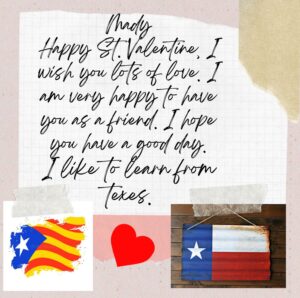 Mady
Happy St. Valentine. I
wish you lots of love. I
am very happy to have
you as a friend. I hope
you have a good day.
I like to learn from
texes.